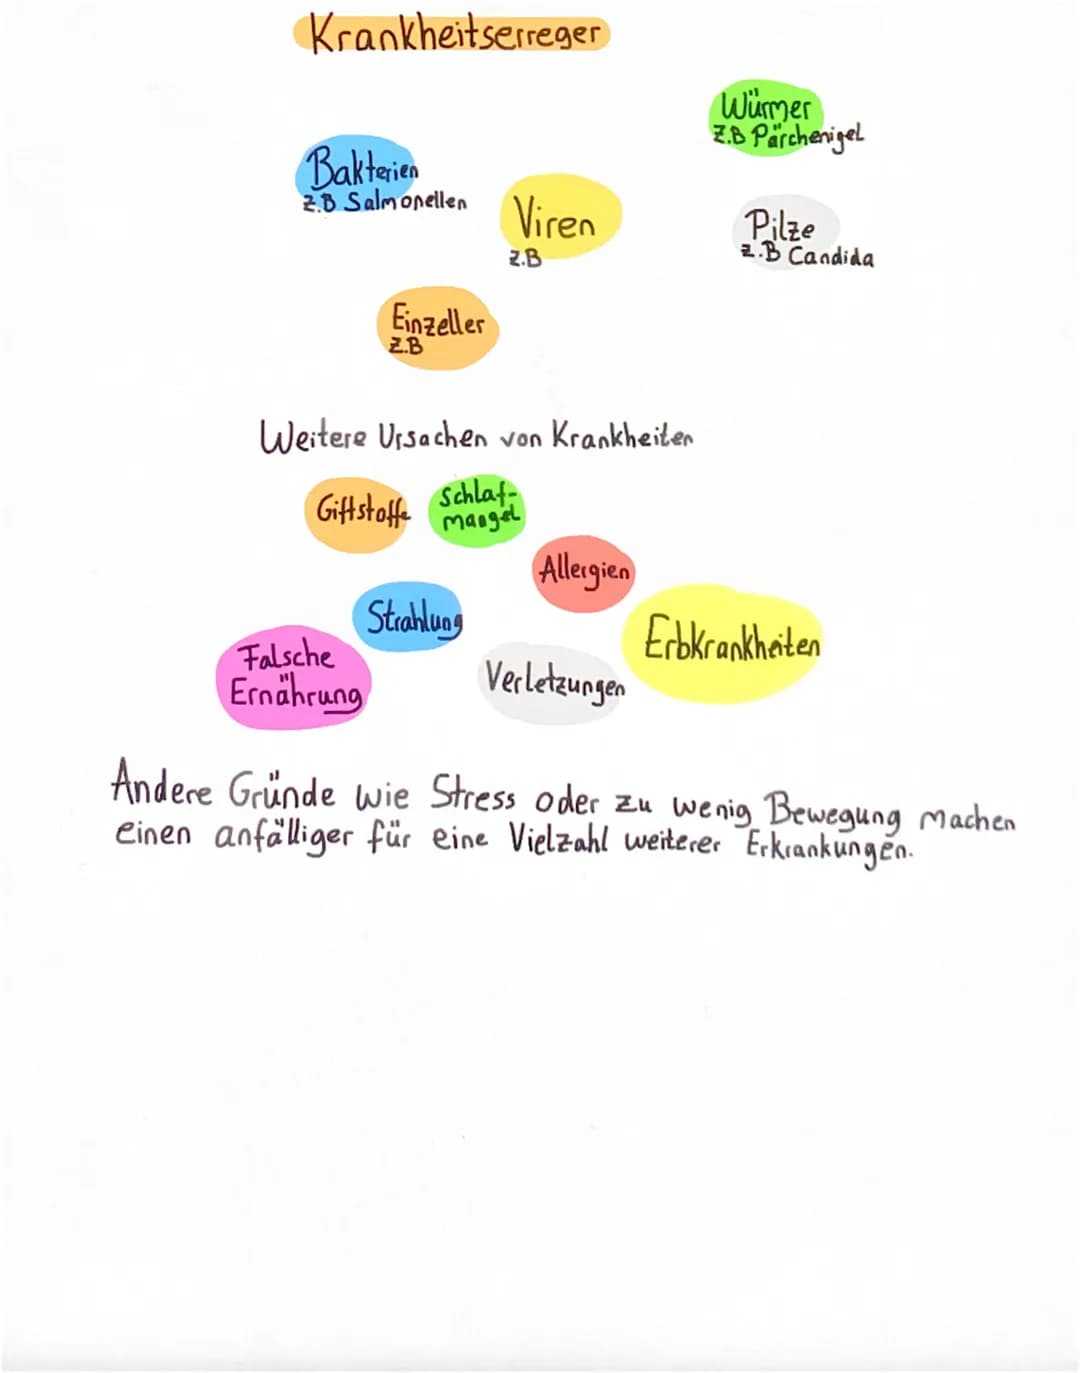 Krankheitserreger
Würmer
Z.B Pärchenigel
Bakterien
z.B Salmonellen
Viren
z.B
Pilze
z.B Candida
Einzeller
Z.B
Weitere Ursachen von Krankheiten
Giftstoffe
Schlaf-
mangel
Allergien
Strahlung
Erbkrankheiten
Falsche
Ernährung
Verletzungen
Andere Gründe wie Stress oder zu wenig Bewegung machen
einen anfälliger für eine Vielzahl weiterer Erkrankungen.